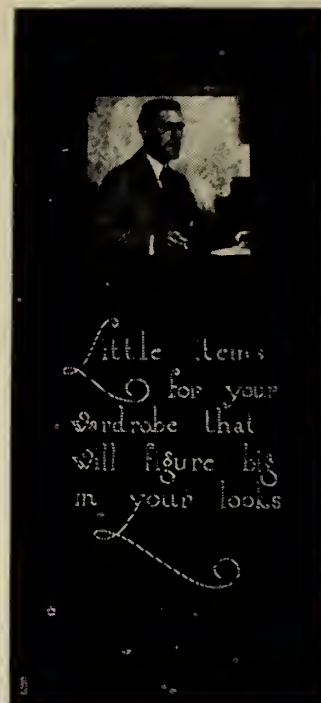 Little items
for your
wardrobe that
will figure big
in your looks